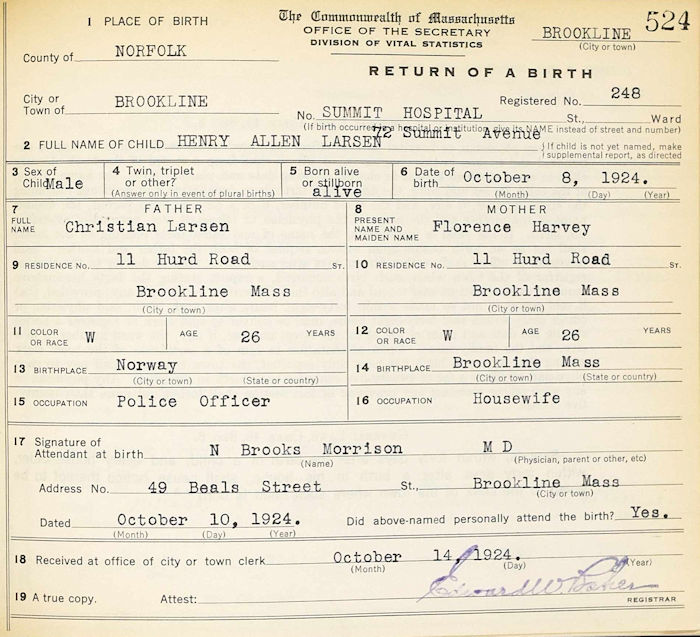 1 PLACE OF BIRTH
The Commonwealth of Massachusetts
OFFICE OF THE SECRETARY
DIVISION OF VITAL STATISTICS
BROOKLINE
(City or town)
524
County of NORFOLK
RETURN OF A BIRTH
City or Town of BROOKLINE
Registered No. 248
No. SUMMIT HOSPITAL St., Ward
(If birth occurred in a hospital or institution, give its NAME instead of street and number)
72 Summit Avenue
2 FULL NAME OF CHILD HENRY ALLEN LARSEN
If child is not yet named, make
supplemental report, as directed
3 Sex of Child Male
4 Twin, triplet or other?
(Answer only in event of plural births)
5 Born alive or stillborn alive
6 Date of birth October 8, 1924.
(Month) (Day) (Year)
7 FATHER
FULL NAME Christian Larsen
8 MOTHER
PRESENT NAME AND MAIDEN NAME Florence Harvey
9 RESIDENCE No. 11 Hurd Road ST.
Brookline Mass
(City or town)
10 RESIDENCE No. 11 Hurd Road ST.
Brookline Mass
(City or town)
11 COLOR OR RACE W AGE 26 YEARS
12 COLOR OR RACE W AGE 26 YEARS
13 BIRTHPLACE Norway
(City or town) (State or country)
14 BIRTHPLACE Brookline Mass
(City or town) (State or country)
15 OCCUPATION Police Officer
16 OCCUPATION Housewife
17 Signature of Attendant at birth N Brooks Morrison M D
(Name) (Physician, parent or other, etc)
Address No. 49 Beals Street St., Brookline Mass
(City or town)
Dated October 10, 1924.
(Month) (Day) (Year)
Did above-named personally attend the birth? Yes.
18 Received at office of city or town clerk October 14, 1924.
(Month) (Day) (Year)
19 A true copy. Attest: Edward W. Baker
REGISTRAR